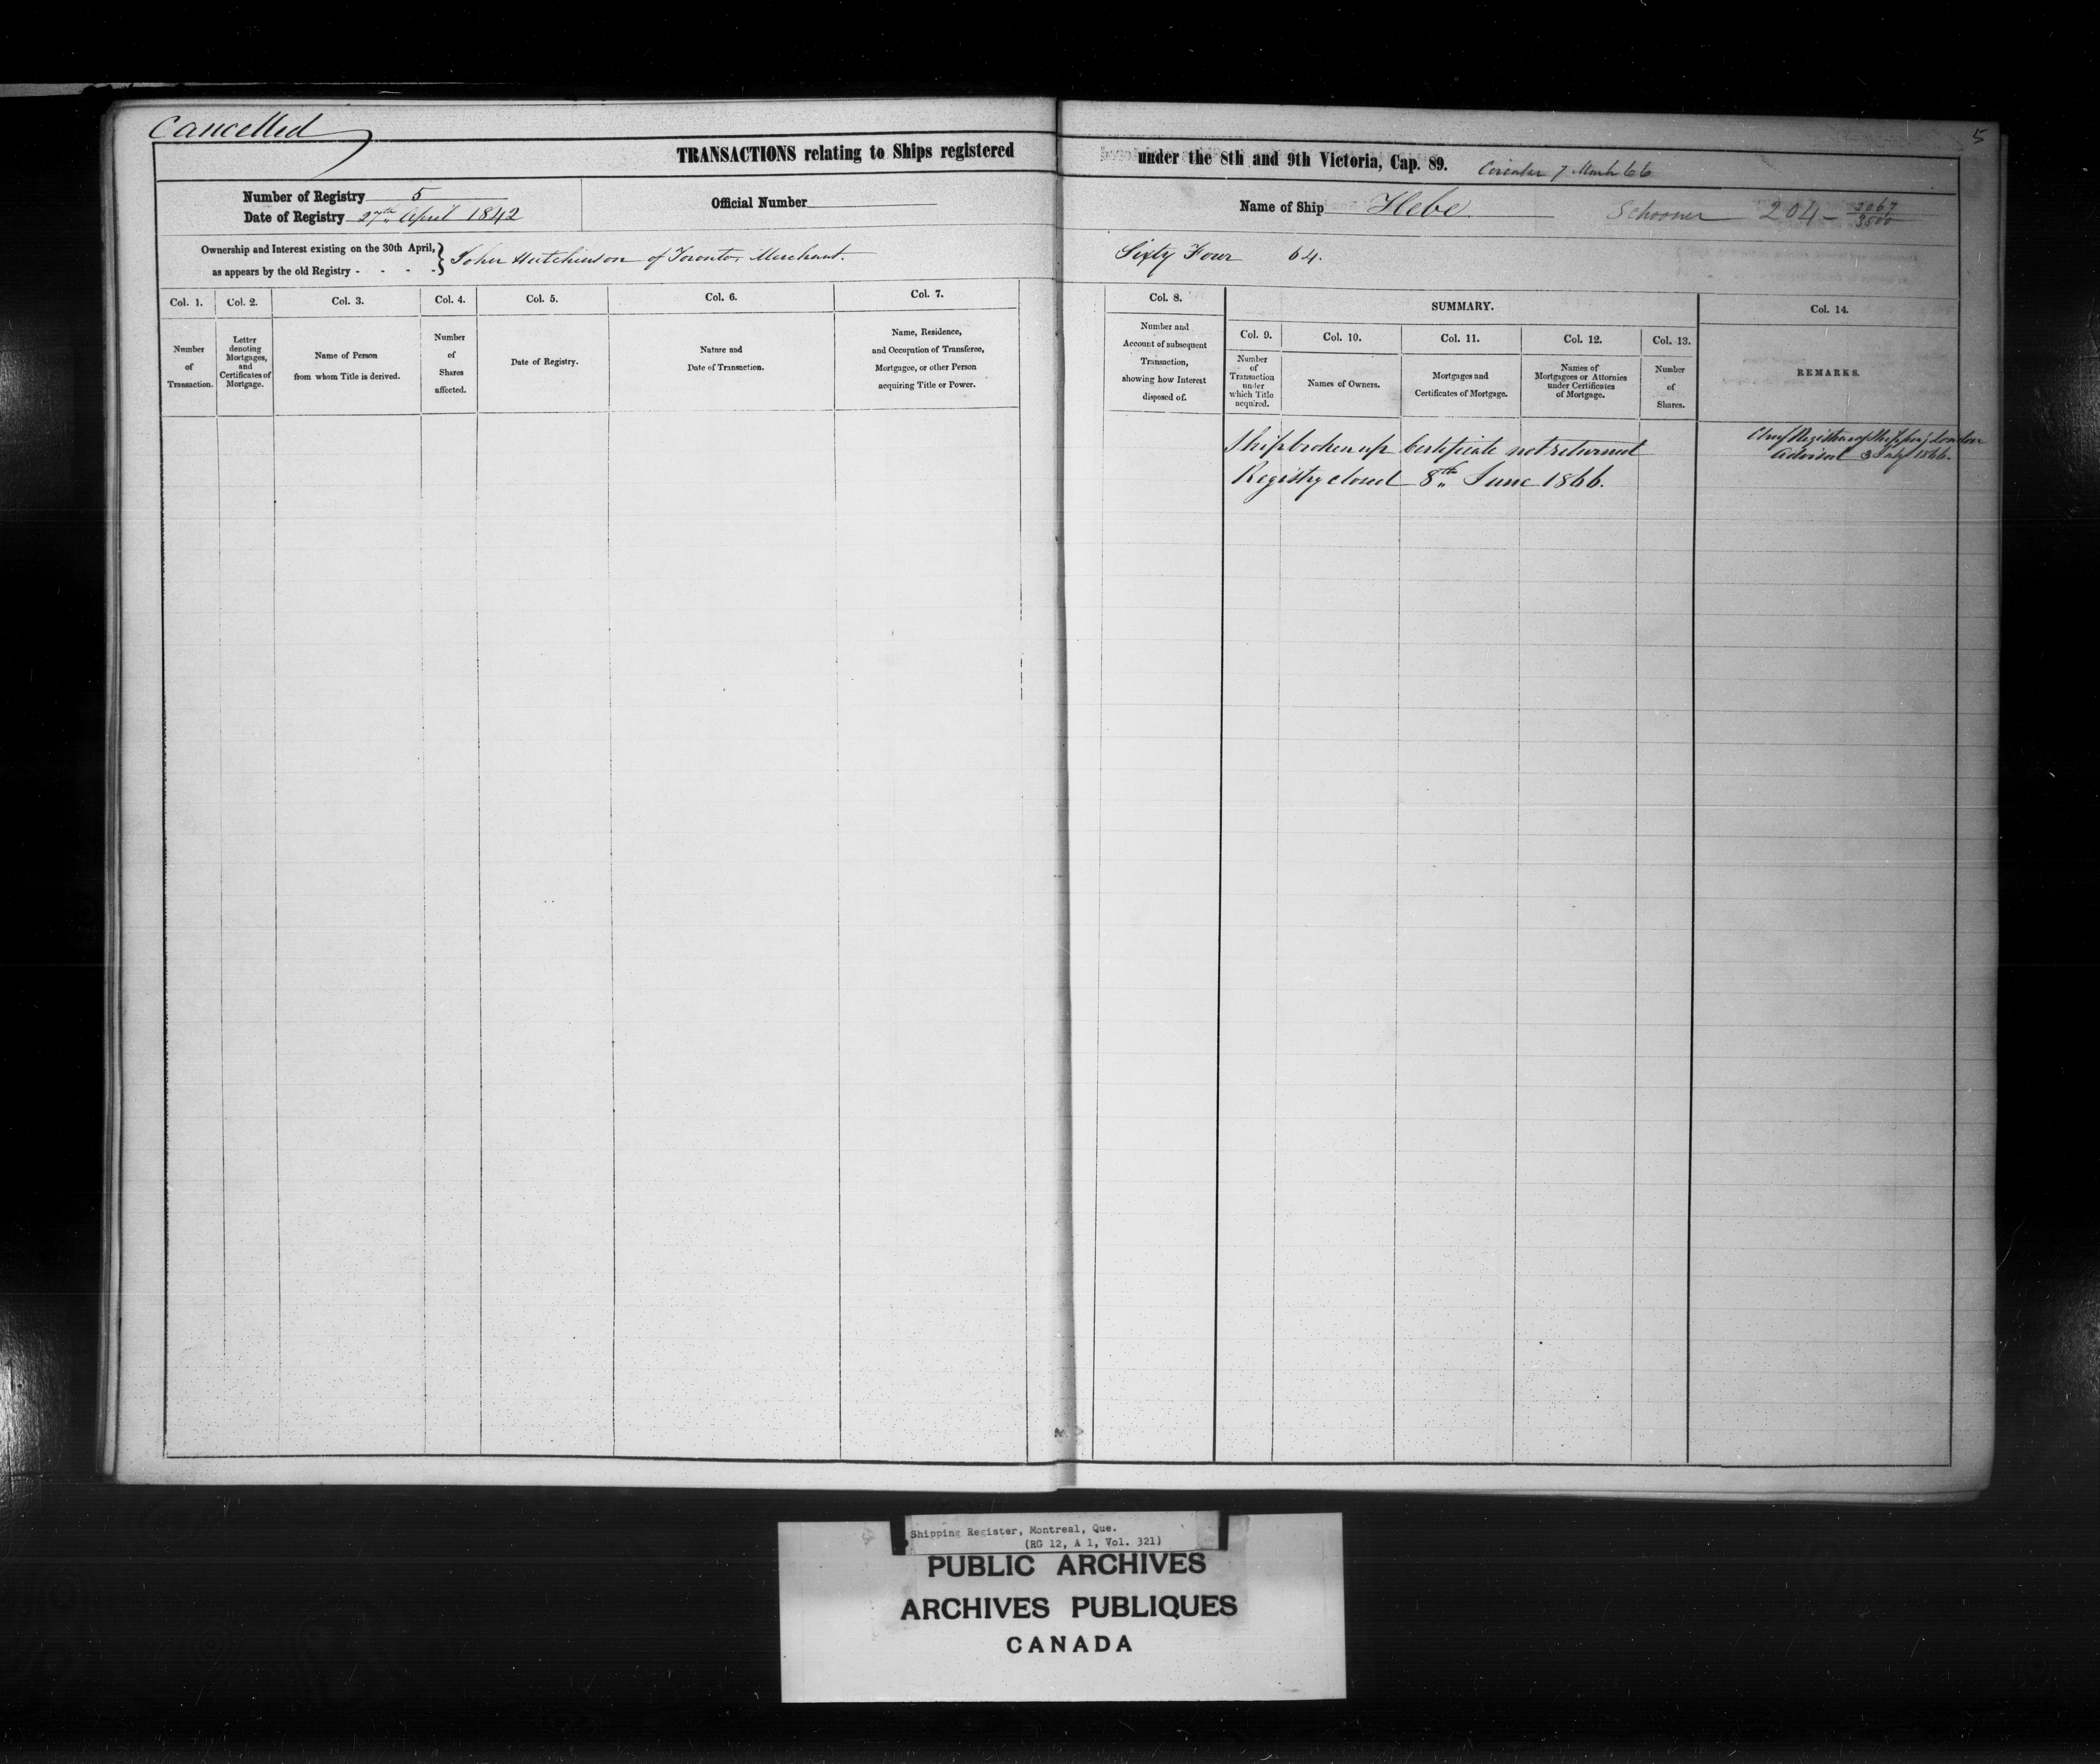 Cancelled
5
TRANSACTIONS relating to Ships registered under the 8th and 9th Victoria, Cap. 89. Circular 7 March 66
Number of Registry 5
Date of Registry 27th April 1842
Official Number
Name of Ship Hebe. Schooner 204 - 3067/3500
Ownership and Interest existing on the 30th April,
as appears by the old Registry - - - -
} John Hutchinson of Toronto, Merchant. Sixty Four 64.
Col. 1.
Number
of
Transaction.
Col. 2.
Letter
denoting
Mortgages,
and
Certificates of
Mortgage.
Col. 3.
Name of Person
from whom Title is derived.
Col. 4.
Number
of
Shares
affected.
Col. 5.
Date of Registry.
Col. 6.
Nature and
Date of Transaction.
Col. 7.
Name, Residence,
and Occupation of Transferee,
Mortgagee, or other Person
acquiring Title or Power.
Col. 8.
Number and
Account of subsequent
Transaction,
showing how Interest
disposed of.
SUMMARY.
Col. 9.
Number
of
Transaction
under
which Title
acquired.
Col. 10.
Names of Owners.
Col. 11.
Mortgages and
Certificates of Mortgage.
Col. 12.
Names of
Mortgagees or Attornies
under Certificates
of Mortgage.
Col. 13.
Number
of
Shares.
Col. 14.
REMARKS.
Ship broken up Certificate not returned
Registry closed 8th June 1866.
Chief Registrar of Shipping London
Advised 3 July 1866.
Shipping Register, Montreal, Que.
(RG 12, A 1, Vol. 321)
PUBLIC ARCHIVES
ARCHIVES PUBLIQUES
CANADA